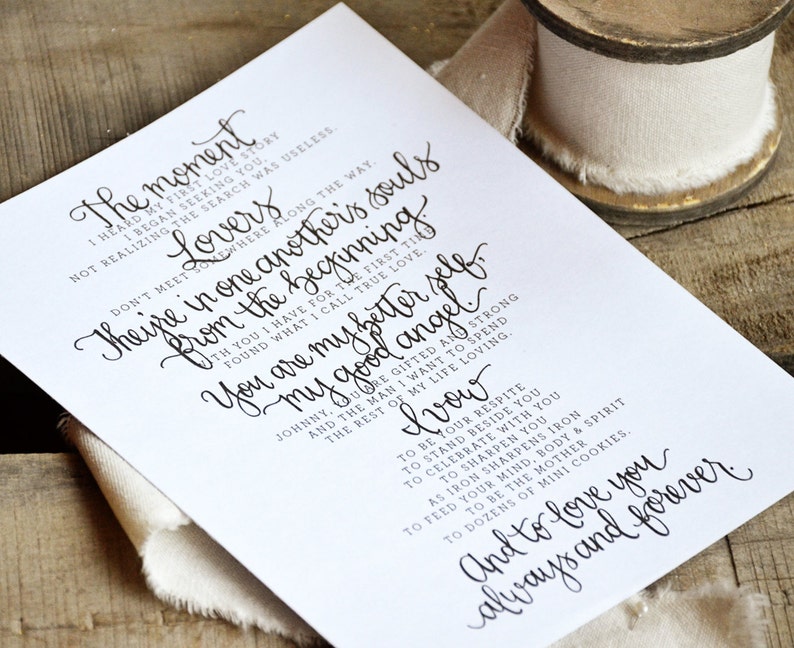 The moment
I HEARD MY FIRST LOVE STORY
I BEGAN SEEKING YOU,
NOT REALIZING THE SEARCH WAS USELESS.
Lovers
DON'T MEET SOMEWHERE ALONG THE WAY.
They're in one another's souls
from the beginning.
WITH YOU I HAVE FOR THE FIRST TIME
FOUND WHAT I CALL TRUE LOVE.
You are my better self,
my good angel.
JOHNNY, YOU ARE GIFTED AND STRONG
AND THE MAN I WANT TO SPEND
THE REST OF MY LIFE LOVING.
I vow
TO BE YOUR RESPITE
TO STAND BESIDE YOU
TO CELEBRATE WITH YOU
TO SHARPEN YOU
AS IRON SHARPENS IRON
TO FEED YOUR MIND, BODY & SPIRIT
TO BE THE MOTHER
TO DOZENS OF MINI COOKIES.
And to love you
always and forever.